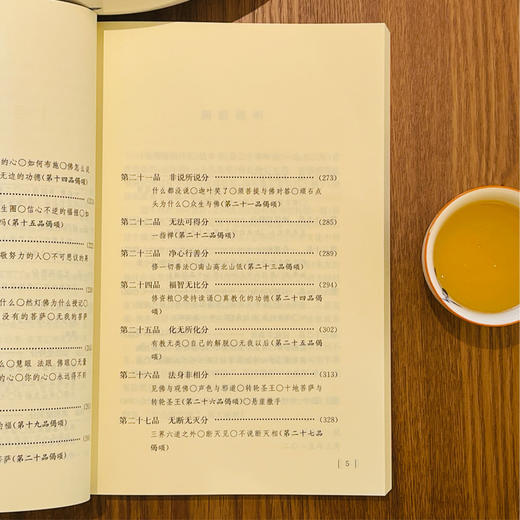 的心〇如何布施〇佛怎么说
无边的功德(第十四品偈颂)
生圈〇信心不逆的福报〇如
吗(第十五品偈颂)
敬努力的人〇不可思议的果
什么〇然灯佛为什么授记〇
没有的菩萨〇无我的菩萨
么〇慧眼 法眼 佛眼〇无量
的心〇你的心〇永远得不到
为福(第十九品偈颂)
菩萨(第二十品偈颂)
第二十一品 非说所说分 (273)
什么都没说〇迦叶笑了〇须菩提与佛对答〇顽石点
头为什么〇众生与佛(第二十一品偈颂)
第二十二品 无法可得分 (285)
一指禅(第二十二品偈颂)
第二十三品 净心行善分 (289)
修一切善法〇南山高北山低(第二十三品偈颂)
第二十四品 福智无比分 (294)
修资粮〇受持读诵〇真教化的功德(第二十四品偈
颂)
第二十五品 化无所化分 (302)
有教无类〇自己的解脱〇无我以后(第二十五品偈
颂)
第二十六品 法身非相分 (313)
见佛与观佛〇声色与邪道〇转轮圣王〇十地菩萨与
转轮圣王(第二十六品偈颂)〇悬崖撒手
第二十七品 无断无灭分 (328)
三界六道之外〇断灭见〇不说断灭相(第二十七品
偈颂)
5